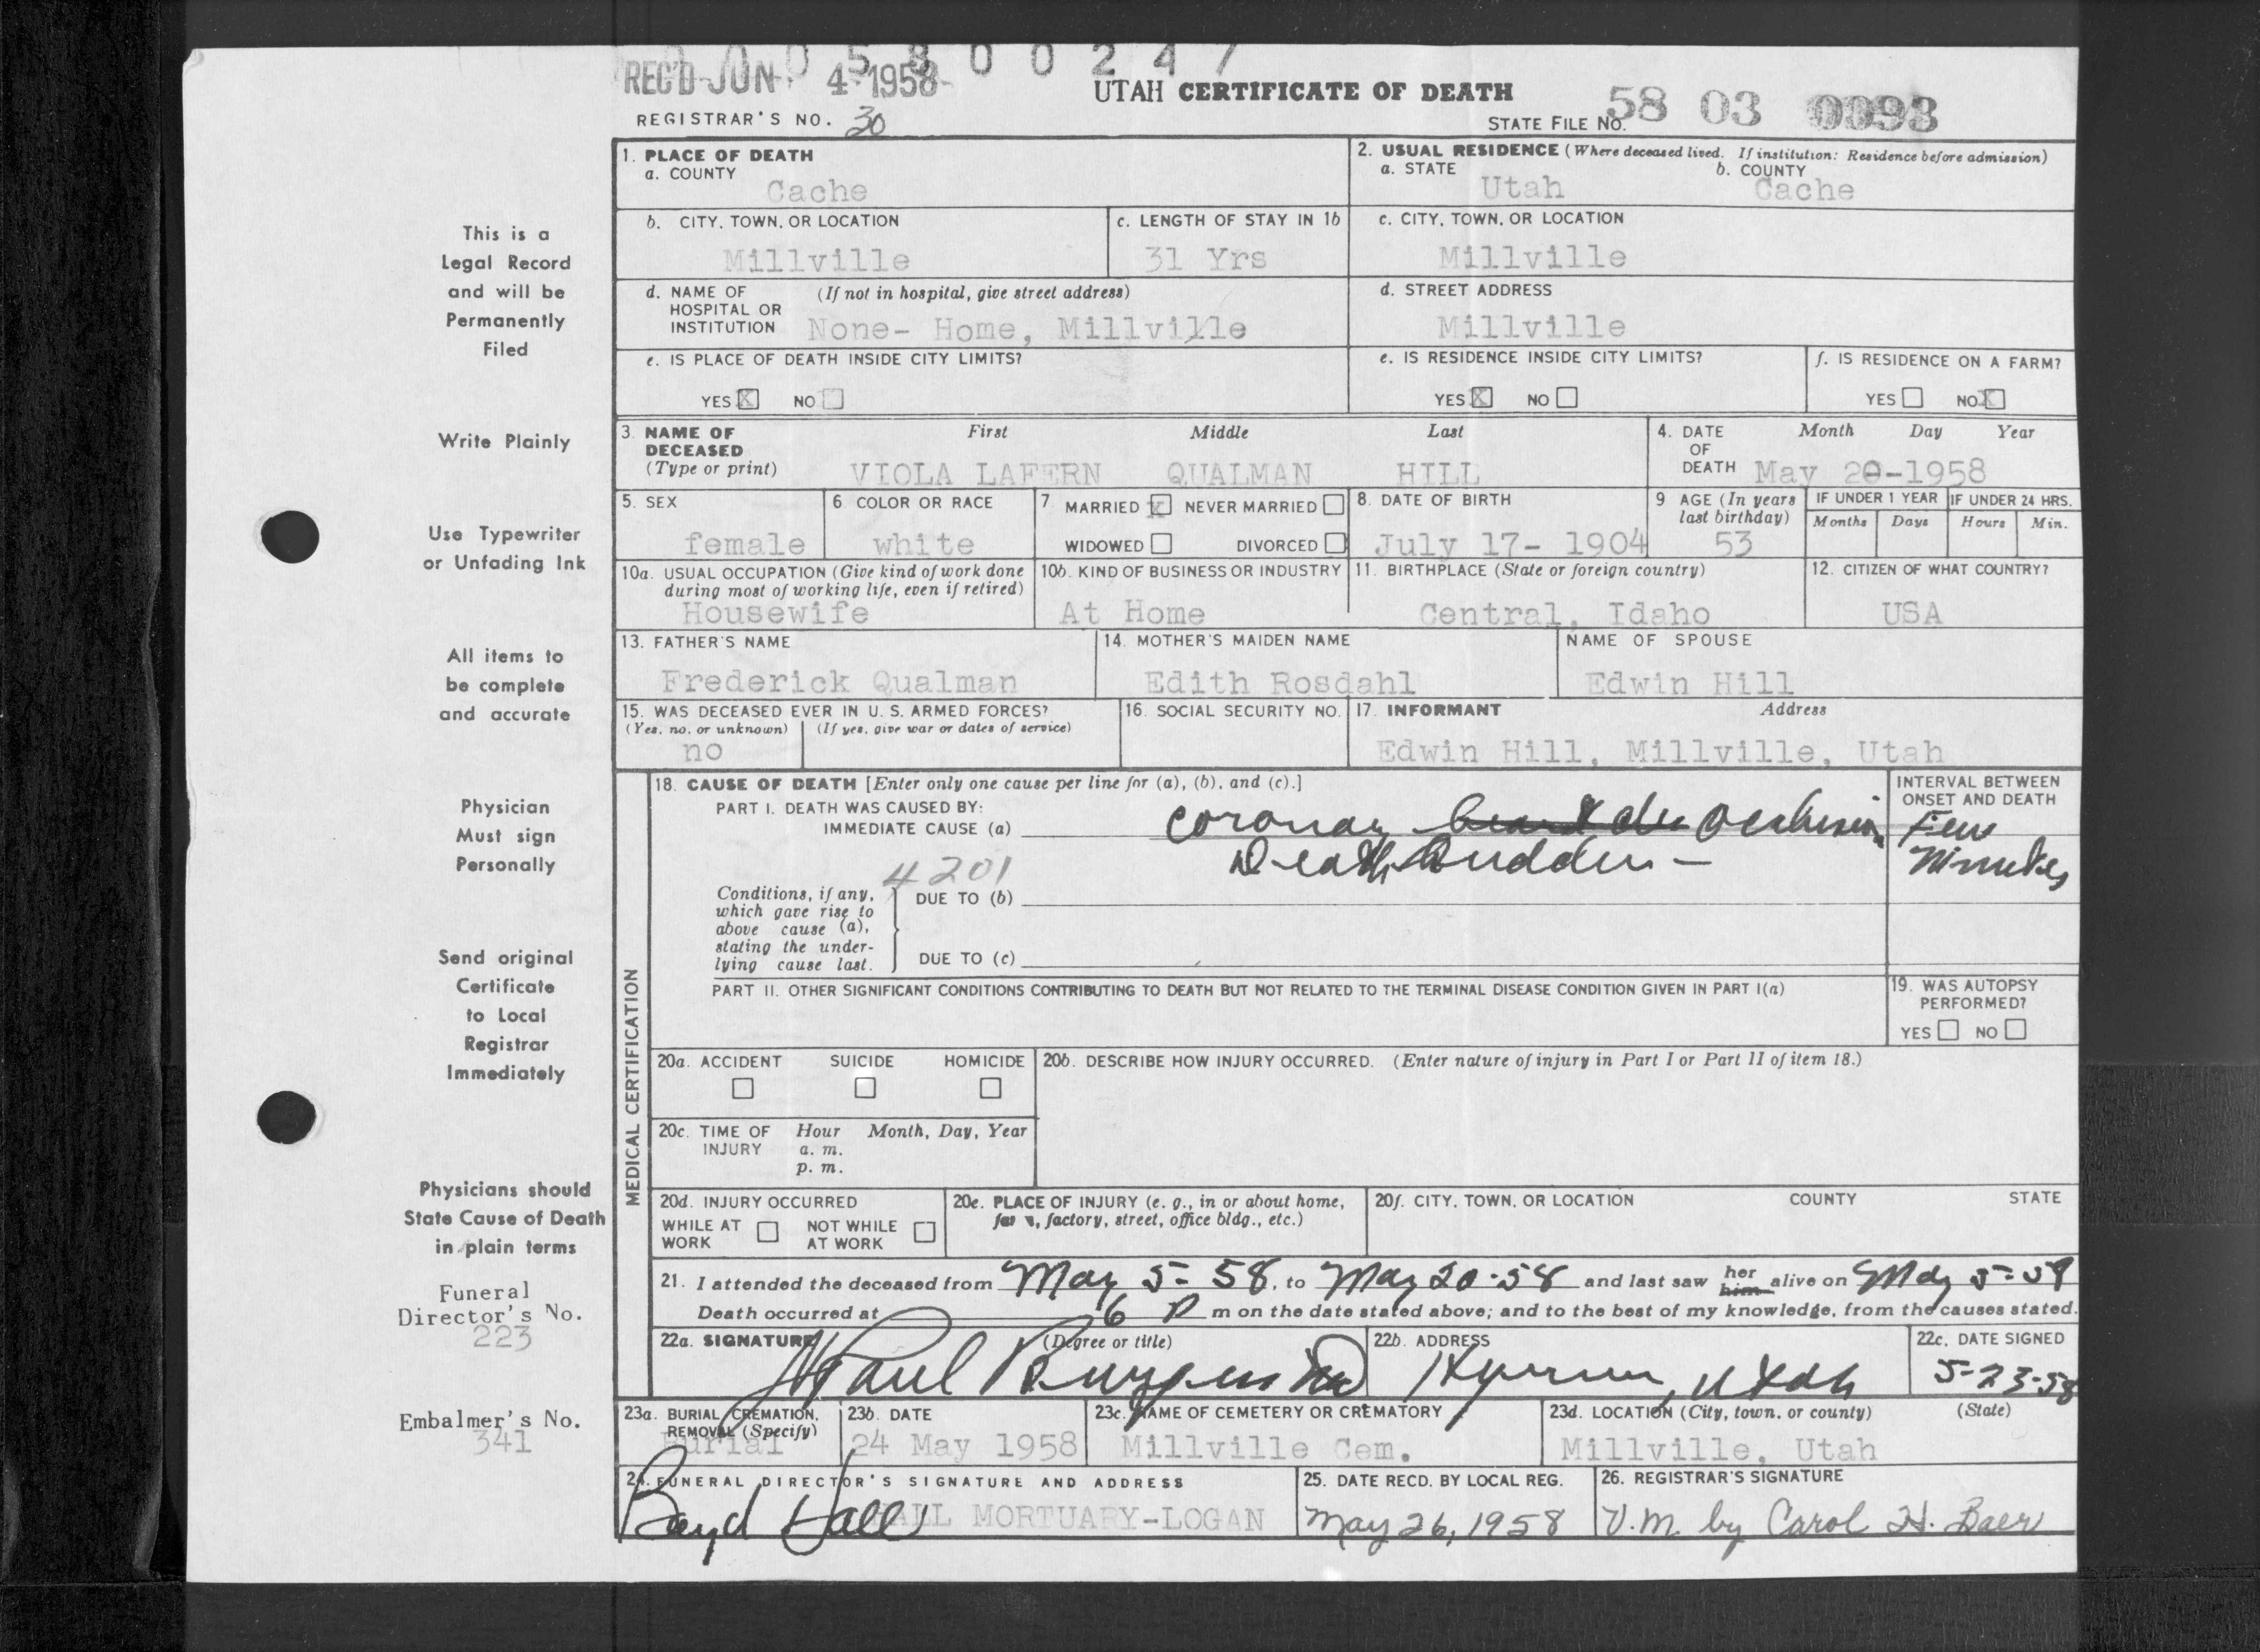 0 0 0 5 8 0 0 2 4 7
REC'D JUN 4 - 1958
UTAH CERTIFICATE OF DEATH
REGISTRAR'S NO. 30
STATE FILE NO. 58 03 0093
This is a
Legal Record
and will be
Permanently
Filed
Write Plainly
Use Typewriter
or Unfading Ink
All items to
be complete
and accurate
Physician
Must sign
Personally
Send original
Certificate
to Local
Registrar
Immediately
Physicians should
State Cause of Death
in plain terms
Funeral
Director's No.
223
Embalmer's No.
341
1. PLACE OF DEATH
a. COUNTY
Cache
2. USUAL RESIDENCE (Where deceased lived. If institution: Residence before admission)
a. STATE b. COUNTY
Utah Cache
b. CITY, TOWN, OR LOCATION
Millville
c. LENGTH OF STAY IN 1b
31 Yrs
c. CITY, TOWN, OR LOCATION
Millville
d. NAME OF (If not in hospital, give street address)
HOSPITAL OR
INSTITUTION None- Home, Millville
d. STREET ADDRESS
Millville
e. IS PLACE OF DEATH INSIDE CITY LIMITS?
YES X NO
e. IS RESIDENCE INSIDE CITY LIMITS?
YES X NO
f. IS RESIDENCE ON A FARM?
YES NO X
3. NAME OF First Middle Last
DECEASED
(Type or print) VIOLA LAFERN QUALMAN HILL
4. DATE Month Day Year
OF
DEATH May 20-1958
5. SEX
female
6 COLOR OR RACE
white
7. MARRIED X NEVER MARRIED
WIDOWED DIVORCED
8. DATE OF BIRTH
July 17- 1904
9 AGE (In years
last birthday)
53
IF UNDER 1 YEAR IF UNDER 24 HRS.
Months Days Hours Min.
10a. USUAL OCCUPATION (Give kind of work done
during most of working life, even if retired)
Housewife
10b. KIND OF BUSINESS OR INDUSTRY
At Home
11. BIRTHPLACE (State or foreign country)
Central, Idaho
12. CITIZEN OF WHAT COUNTRY?
USA
13. FATHER'S NAME
Frederick Qualman
14. MOTHER'S MAIDEN NAME
Edith Rosdahl
NAME OF SPOUSE
Edwin Hill
15. WAS DECEASED EVER IN U. S. ARMED FORCES?
(Yes, no, or unknown) (If yes, give war or dates of service)
no
16. SOCIAL SECURITY NO.
17. INFORMANT Address
Edwin Hill, Millville, Utah
MEDICAL CERTIFICATION
18. CAUSE OF DEATH [Enter only one cause per line for (a), (b), and (c).]
PART I. DEATH WAS CAUSED BY:
IMMEDIATE CAUSE (a) Coronary Occlusion
Death Sudden -
4201
INTERVAL BETWEEN
ONSET AND DEATH
Few
Minutes
Conditions, if any,
which gave rise to
above cause (a),
stating the under-
lying cause last.
DUE TO (b)
DUE TO (c)
PART II. OTHER SIGNIFICANT CONDITIONS CONTRIBUTING TO DEATH BUT NOT RELATED TO THE TERMINAL DISEASE CONDITION GIVEN IN PART I(a)
19. WAS AUTOPSY
PERFORMED?
YES NO
20a. ACCIDENT SUICIDE HOMICIDE
20b. DESCRIBE HOW INJURY OCCURRED. (Enter nature of injury in Part I or Part II of item 18.)
20c. TIME OF Hour Month, Day, Year
INJURY a. m.
p. m.
20d. INJURY OCCURRED
WHILE AT NOT WHILE
WORK AT WORK
20e. PLACE OF INJURY (e. g., in or about home,
farm, factory, street, office bldg., etc.)
20f. CITY, TOWN, OR LOCATION COUNTY STATE
21. I attended the deceased from May 5- 58, to May 20-58 and last saw her him alive on May 5-58
Death occurred at 6 P m on the date stated above; and to the best of my knowledge, from the causes stated.
22a. SIGNATURE (Degree or title)
Paul Burgess MD
22b. ADDRESS
Hyrum, Utah
22c. DATE SIGNED
5-23-58
23a. BURIAL, CREMATION,
REMOVAL (Specify)
Burial
23b. DATE
24 May 1958
23c. NAME OF CEMETERY OR CREMATORY
Millville Cem.
23d. LOCATION (City, town, or county) (State)
Millville, Utah
24. FUNERAL DIRECTOR'S SIGNATURE AND ADDRESS
Boyd Hall HALL MORTUARY-LOGAN
25. DATE RECD. BY LOCAL REG.
May 26, 1958
26. REGISTRAR'S SIGNATURE
V.M. by Carol H. Baer